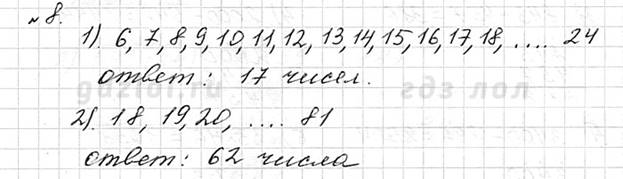 №8.
1). 6, 7, 8, 9, 10, 11, 12, 13, 14, 15, 16, 17, 18, .... 24
ответ: 17 чисел.
2). 18, 19, 20, .... 81
ответ: 62 числа